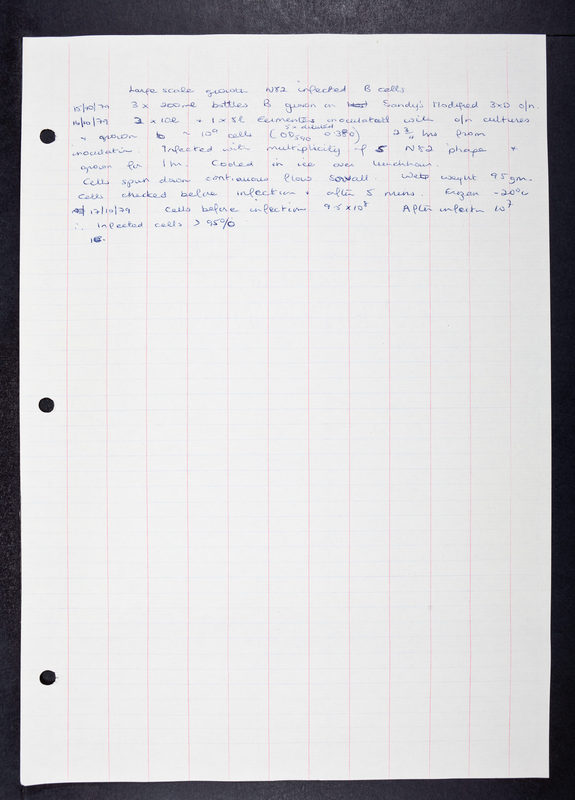 Large scale growth N82 infected B cells
15/10/79 3 x 200ml bottles B grown in Sandy's Modified 3xD o/n.
16/10/79 2 x 10l + 1 x 5l fermenters inoculated with o/n cultures
5x diluted
+ grown to ~ 10⁹ cells (OD₅₉₀ 0.380) 2 3/4 hrs from
inoculation. Infected with multiplicity of 5 N82 phage +
grown for 1 hr. Cooled in ice over lunchhour.
Cells spun down continuous flow Sorvall. Wet weight 95 gm.
Cells checked before infection + after 5 mins. Frozen -20°c
17/10/79 Cells before infection 9.5 x 10⁸ After infectn 10⁷
∴ Infected cells > 95%